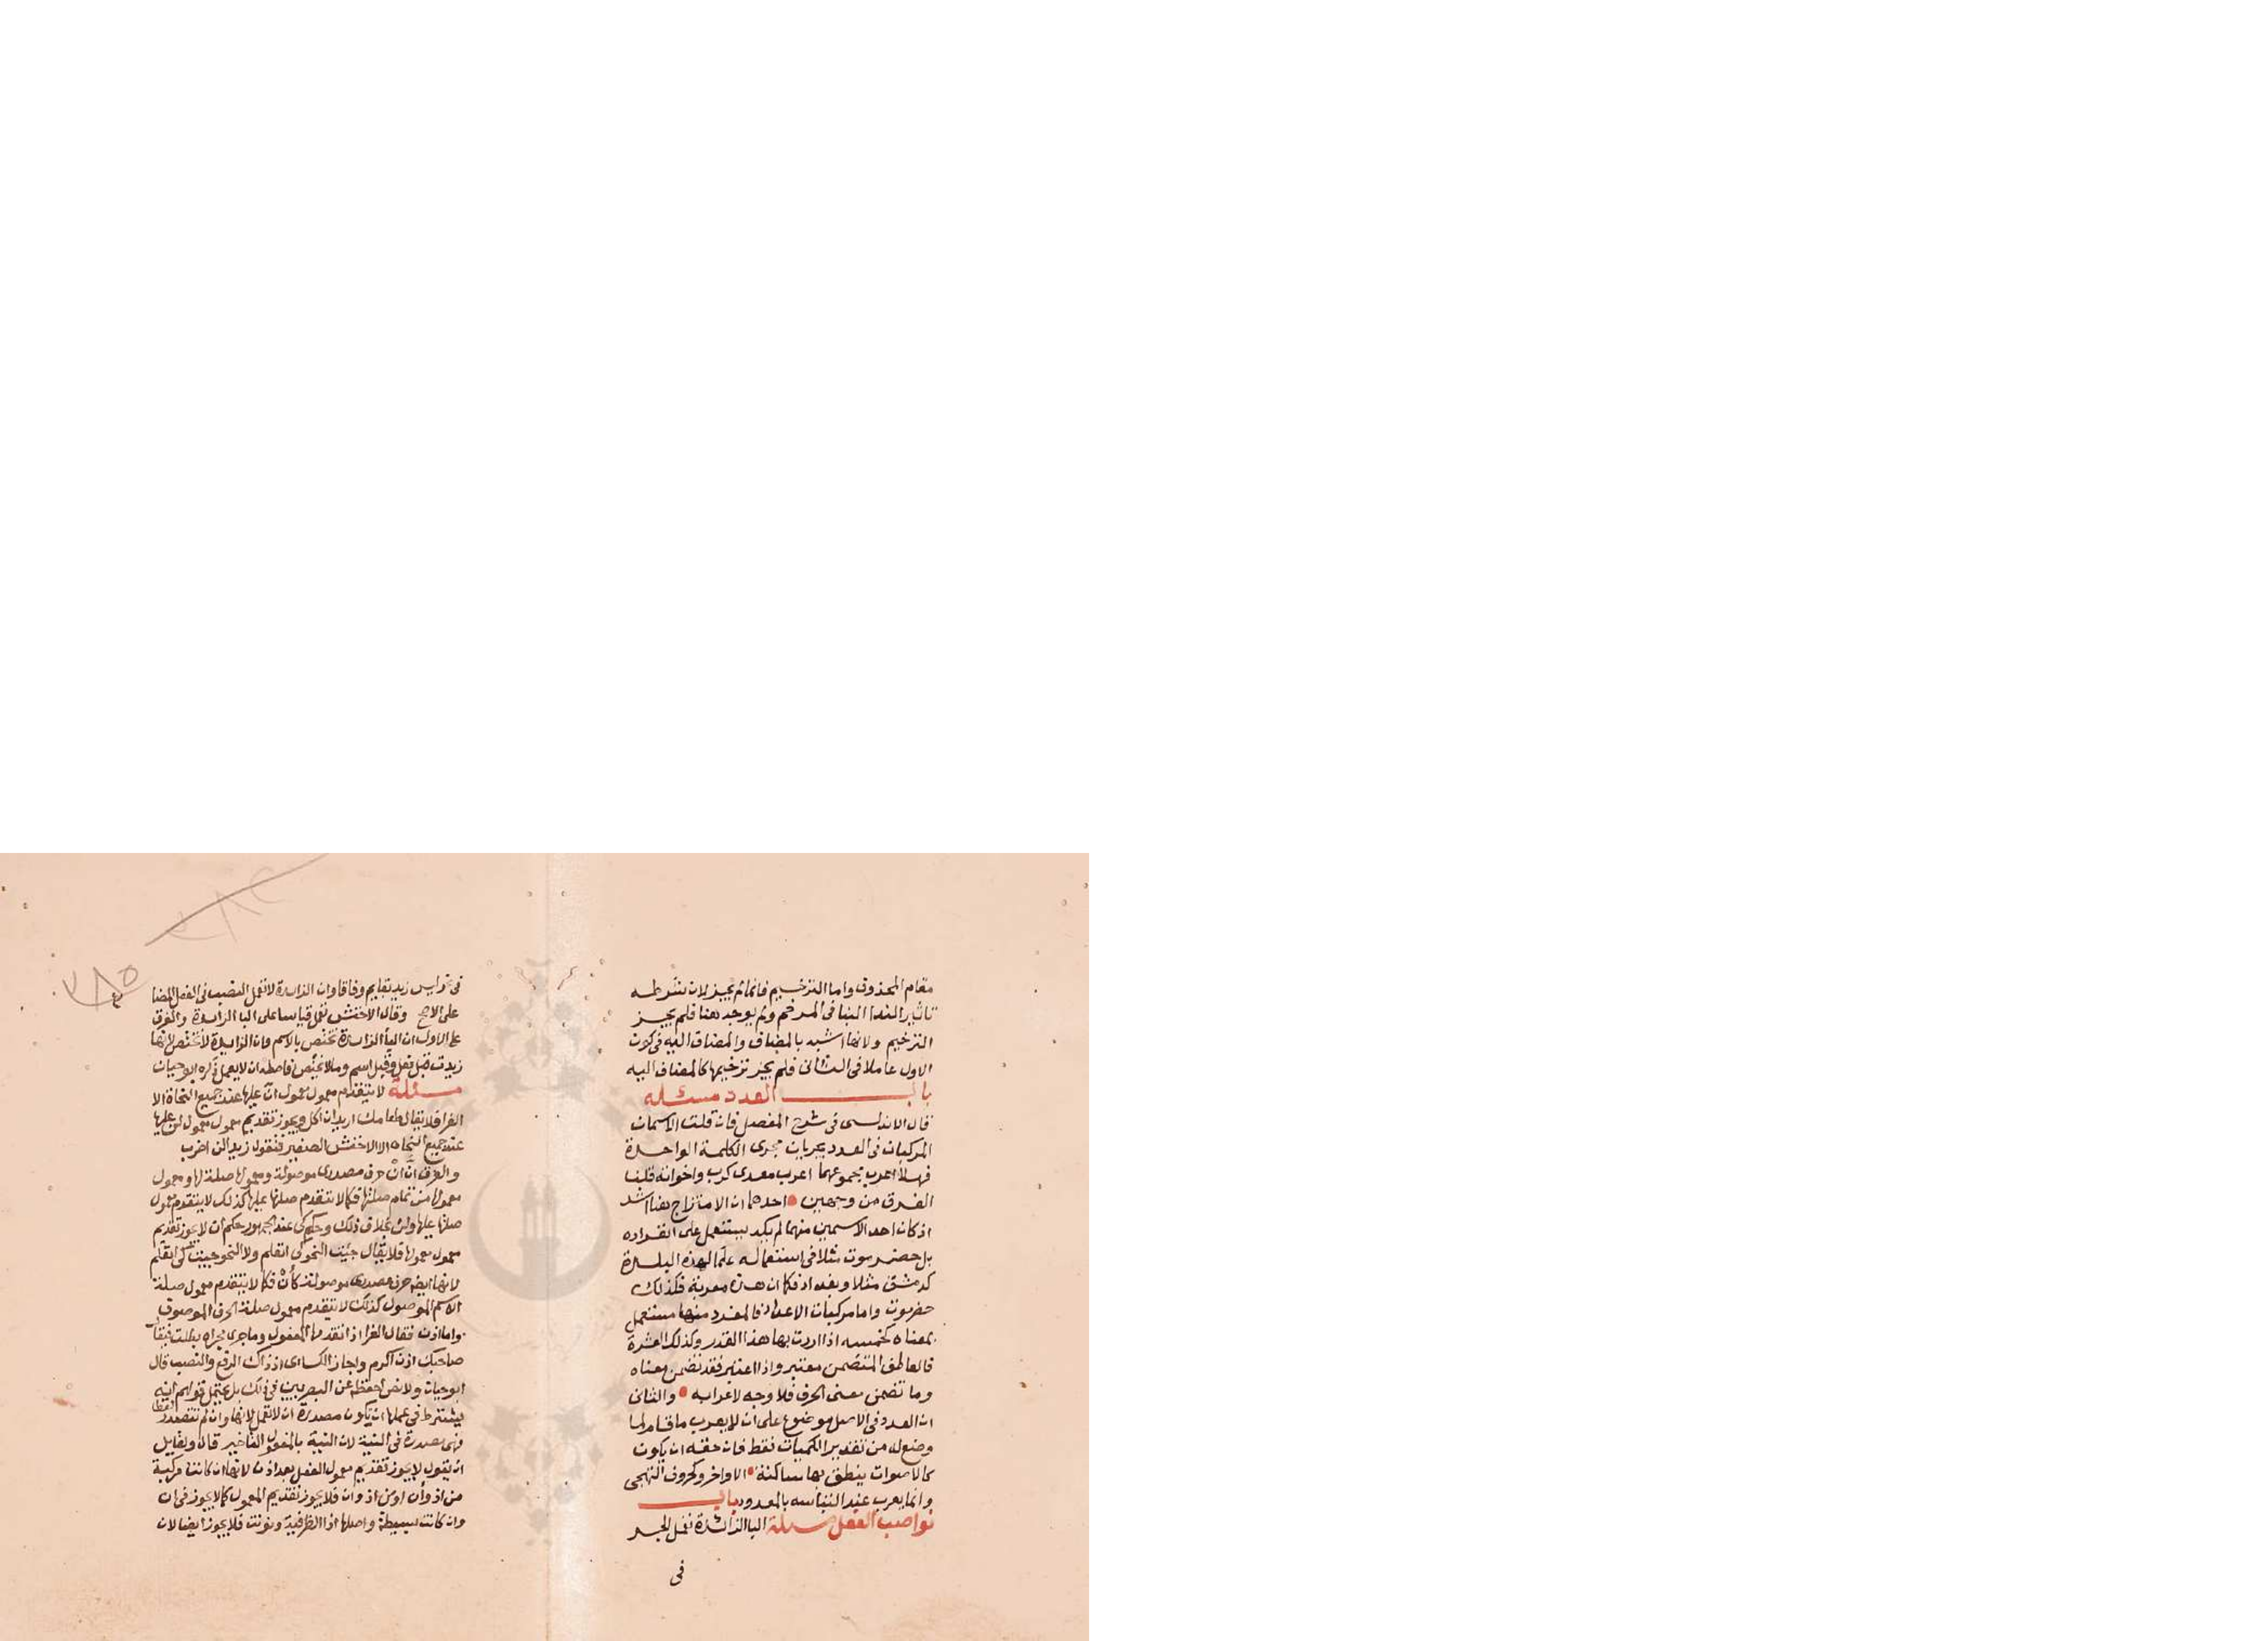 مقام المحذوف واما الترخيم فانما لم يجز لان شرطه
تاثير الندا البنا فى المرخم ولم يوجد هنا فلم يجز
الترخيم ولانها اشبه بالمضاف والمضاف اليه فى كون
الاول عاملا فى الثانى فلم يجز ترخيمها كالمضاف اليه
باب العدد مسئله
قال الاندلسى فى شرح المفصل فان قلت الاسمان
المركبان فى العدد يجريان مجرى الكلمة الواحدة
فهلا اعرب مجموعهما اعرب معدى كرب واخواته قلنا
الفرق من وجهين احدهما ان الامتزاج هنا اشد
اذ كان احد الاسمين منهما لم يكد يستعمل على انفراده
بل حضرموت مثلا فى استعماله علما لهذه البلدة
كدمشق مثلا وبغداد فكما ان هذه معربة فكذلك
حضرموت واما مركبات الاعداد فالمفرد منها مستعمل
بمعناه كخمسه اذا اردت بها هذا القدر وكذلك العشرة
فالعاطف المتضمن معتبر واذا اعتبر فقد تضمن معناه
وما تضمن معنى الحرف فلا وجه لاعرابه والثانى
ان العدد فى الاصل موضوع على ان لا يعرب ما دام لما
وضع له من تقدير الكميات فقط فان حقه ان يكون
كالاصوات ينطق بها ساكنة الاواخر وكحروف التهجى
وانما يعرب عند التباسه بالمعدود باب
نواصب الفعل مسئلة البا الزائدة تعمل الجر
فى
فى ليس زيد بقايم وفاقا وان الزايدة لا تعمل النصب فى الفعل المضا
على الاصح وقال الاخفش تعمل قياسا على البا الزايدة والفرق
على الاول ان البا الزايدة تختص بالاسم وان الزايدة لا تختص لانها
زيدت قبل فعل وقبل اسم وما لا يختص فاصله ان لا يعمل ابو حيان
مسئلة لا يتقدم معمول معمول ان عليها عند جميع النحاة الا
الفرا فلا يقال طعامك اريد ان اكل ويجوز تقديم معمول معمول لن عليها
عند جميع النحاه الا الاخفش الصغير فتقول زيدا لن اضرب
والفرق ان أن حرف مصدرى موصولة ومعمولها صلة لها ومعمول
معمولها من تمام صلتها فكما لا تتقدم صلتها عليها كذلك لا يتقدم معمول
صلتها عليها ولن بخلاف ذلك وحكم كى عند الجمهور حكم ان لا يجوز تقديم
معمول معمولها فلا يقال جئت النحو كى اتعلم ولا النحو جيت كى اتعلم
لانها ايضا حرف مصدرى موصولة كأن فكما لا يتقدم معمول صلة
الاسم الموصول كذلك لا يتقدم معمول صلة الحرف الموصول
واما اذن فقال الفرا اذا تقدمها المفعول وما جرى مجراه بطلت فيقال
صاحبك اذن اكرم واجاز الكسائى اذ ذاك الرفع والنصب قال
ابو حيان ولا نص احفظه عن البصريين فى ذلك بل يحتمل قولهم انه
يشترط فى عملها ان يكون مصدرة ان لا تعمل لانها وان لم تتصدر لفظا
فهى مصدرة فى النية لان النية بالمفعول التاخير قال ولقايل
ان يقول لا يجوز تقديم معمول الفعل بعد اذن لانها ان كانت مركبة
من اذ وأن او من اذ وان فلا يجوز تقديم المعمول كما لا يجوز فى ان
وان كانت بسيطة واصلها اذا الظرفية ونونت فلا يجوز ايضا لان